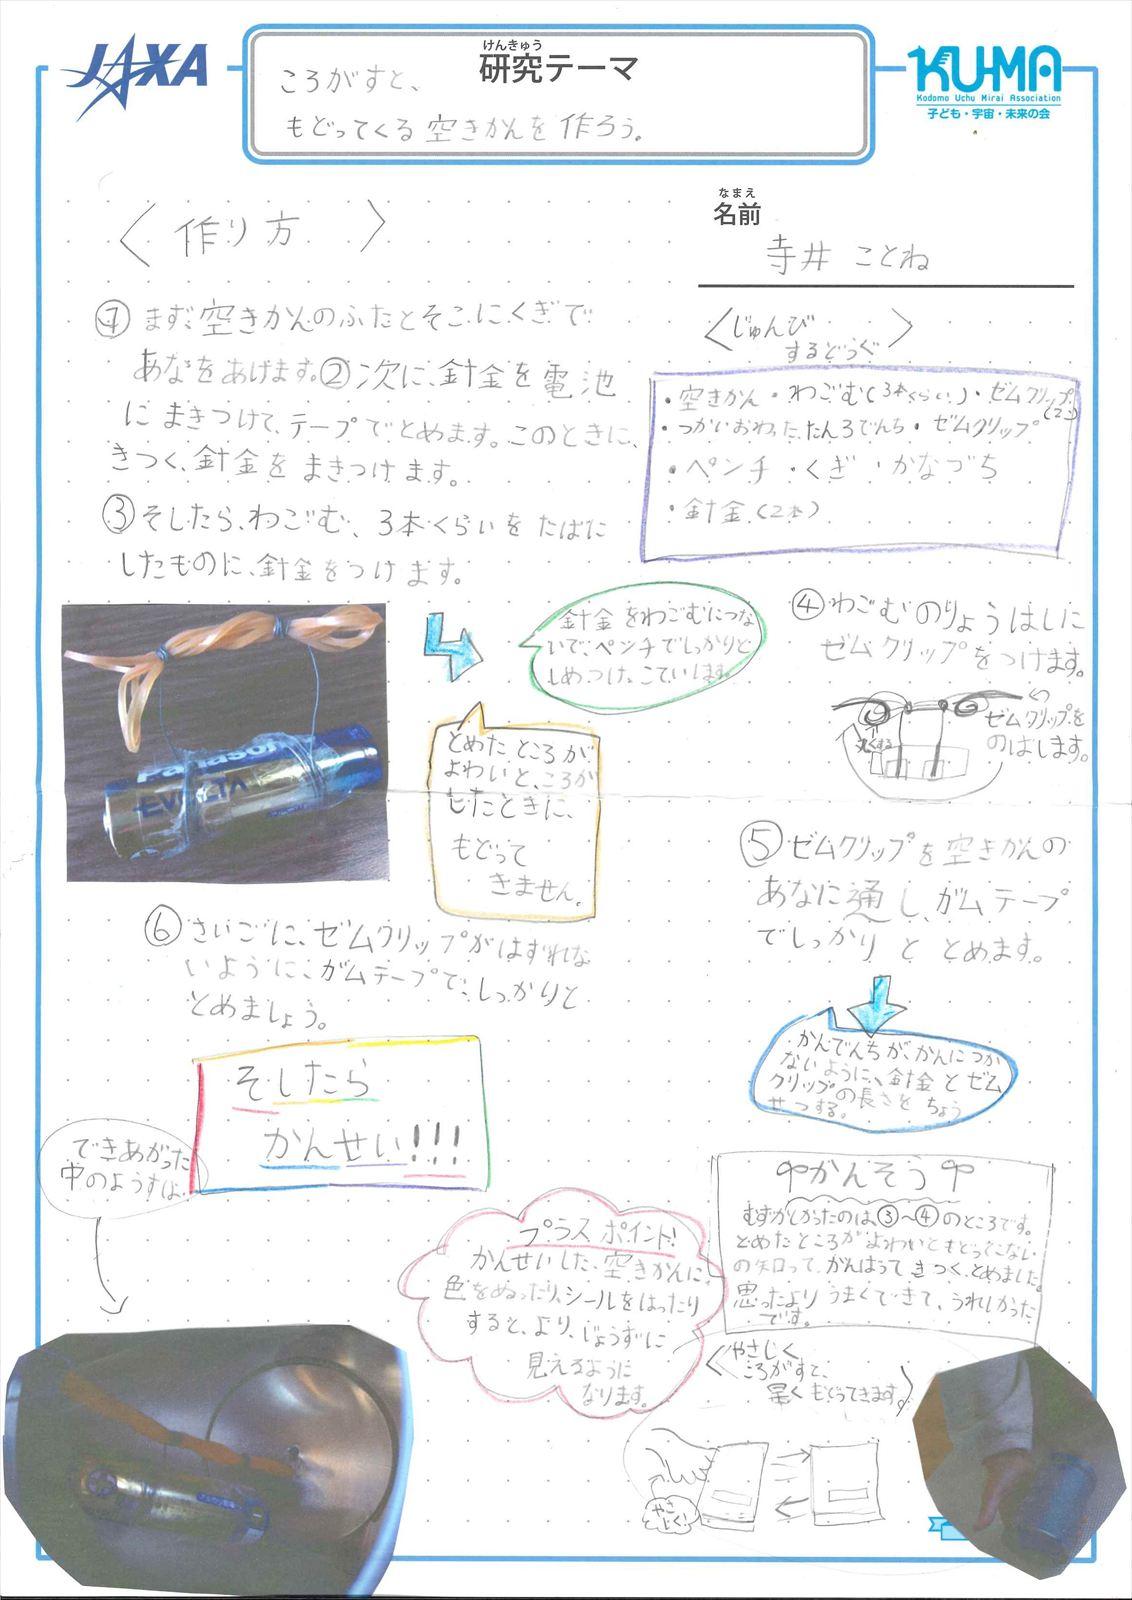 JAXA
けんきゅう
研究テーマ
ころがすと、
もどってくる空きかんを作ろう。
KU-MA
Kodomo Uchu Mirai Association
子ども・宇宙・未来の会
なまえ
名前
寺井 ことね
〈作り方〉
① まず空きかんのふたとそこにくぎで
あなをあけます。②次に、針金を電池
にまきつけて、テープでとめます。このときに、
きつく、針金をまきつけます。
③そしたら、わごむ、3本くらいをたばに
したものに、針金をつけます。
〈じゅんび
するどうぐ〉
・空きかん・わごむ(3本くらい)・ゼムクリップ(2こ)
・つかいおわったたん3でんち・ゼムクリップ
・ペンチ・くぎ・かなづち
・針金(2本)
Panasonic
EVOLTA
針金をわごむにつな
いで、ペンチでしっかりと
しめつけっこています。
とめたところが
よわいと、ころが
したときに、
もどって
きません。
④わごむのりょうはしに
ゼムクリップをつけます。
ゼムクリップを
のばします。
丸くする
⑤ゼムクリップを空きかんの
あなに通し、ガムテープ
でしっかりととめます。
かんでんちが、かんにつか
ないように、針金とゼム
クリップの長さをちょう
せつする。
⑥さいごに、ゼムクリップがはずれな
いように、ガムテープで、しっかりと
とめましょう。
そしたら
かんせい!!!
できあがった
中のようすは
プラスポイント!
かんせいした、空きかんに、
色をぬったり、シールをはったり
すると、より、じょうずに
見えるように
なります。
かんそう
むずかしかったのは、③〜④のところです。
とめたところがよわいともどってこない
の知って、がんばってきつく、とめました。
思ったよりうまくできて、うれしかった
です。
〈やさしく
ころがすと、
早くもどってきます。〉
やさしく!